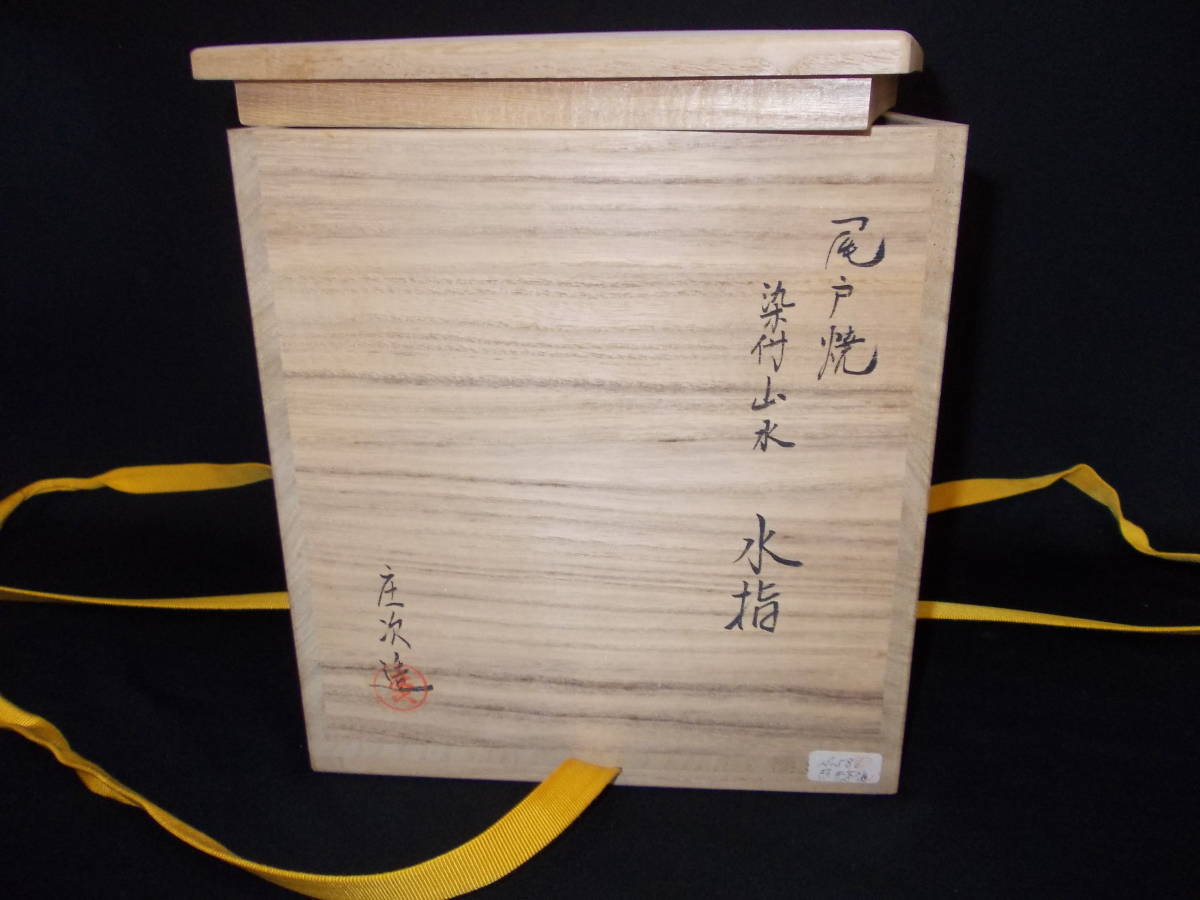 尾戸焼
染付山水 水指
庄次造